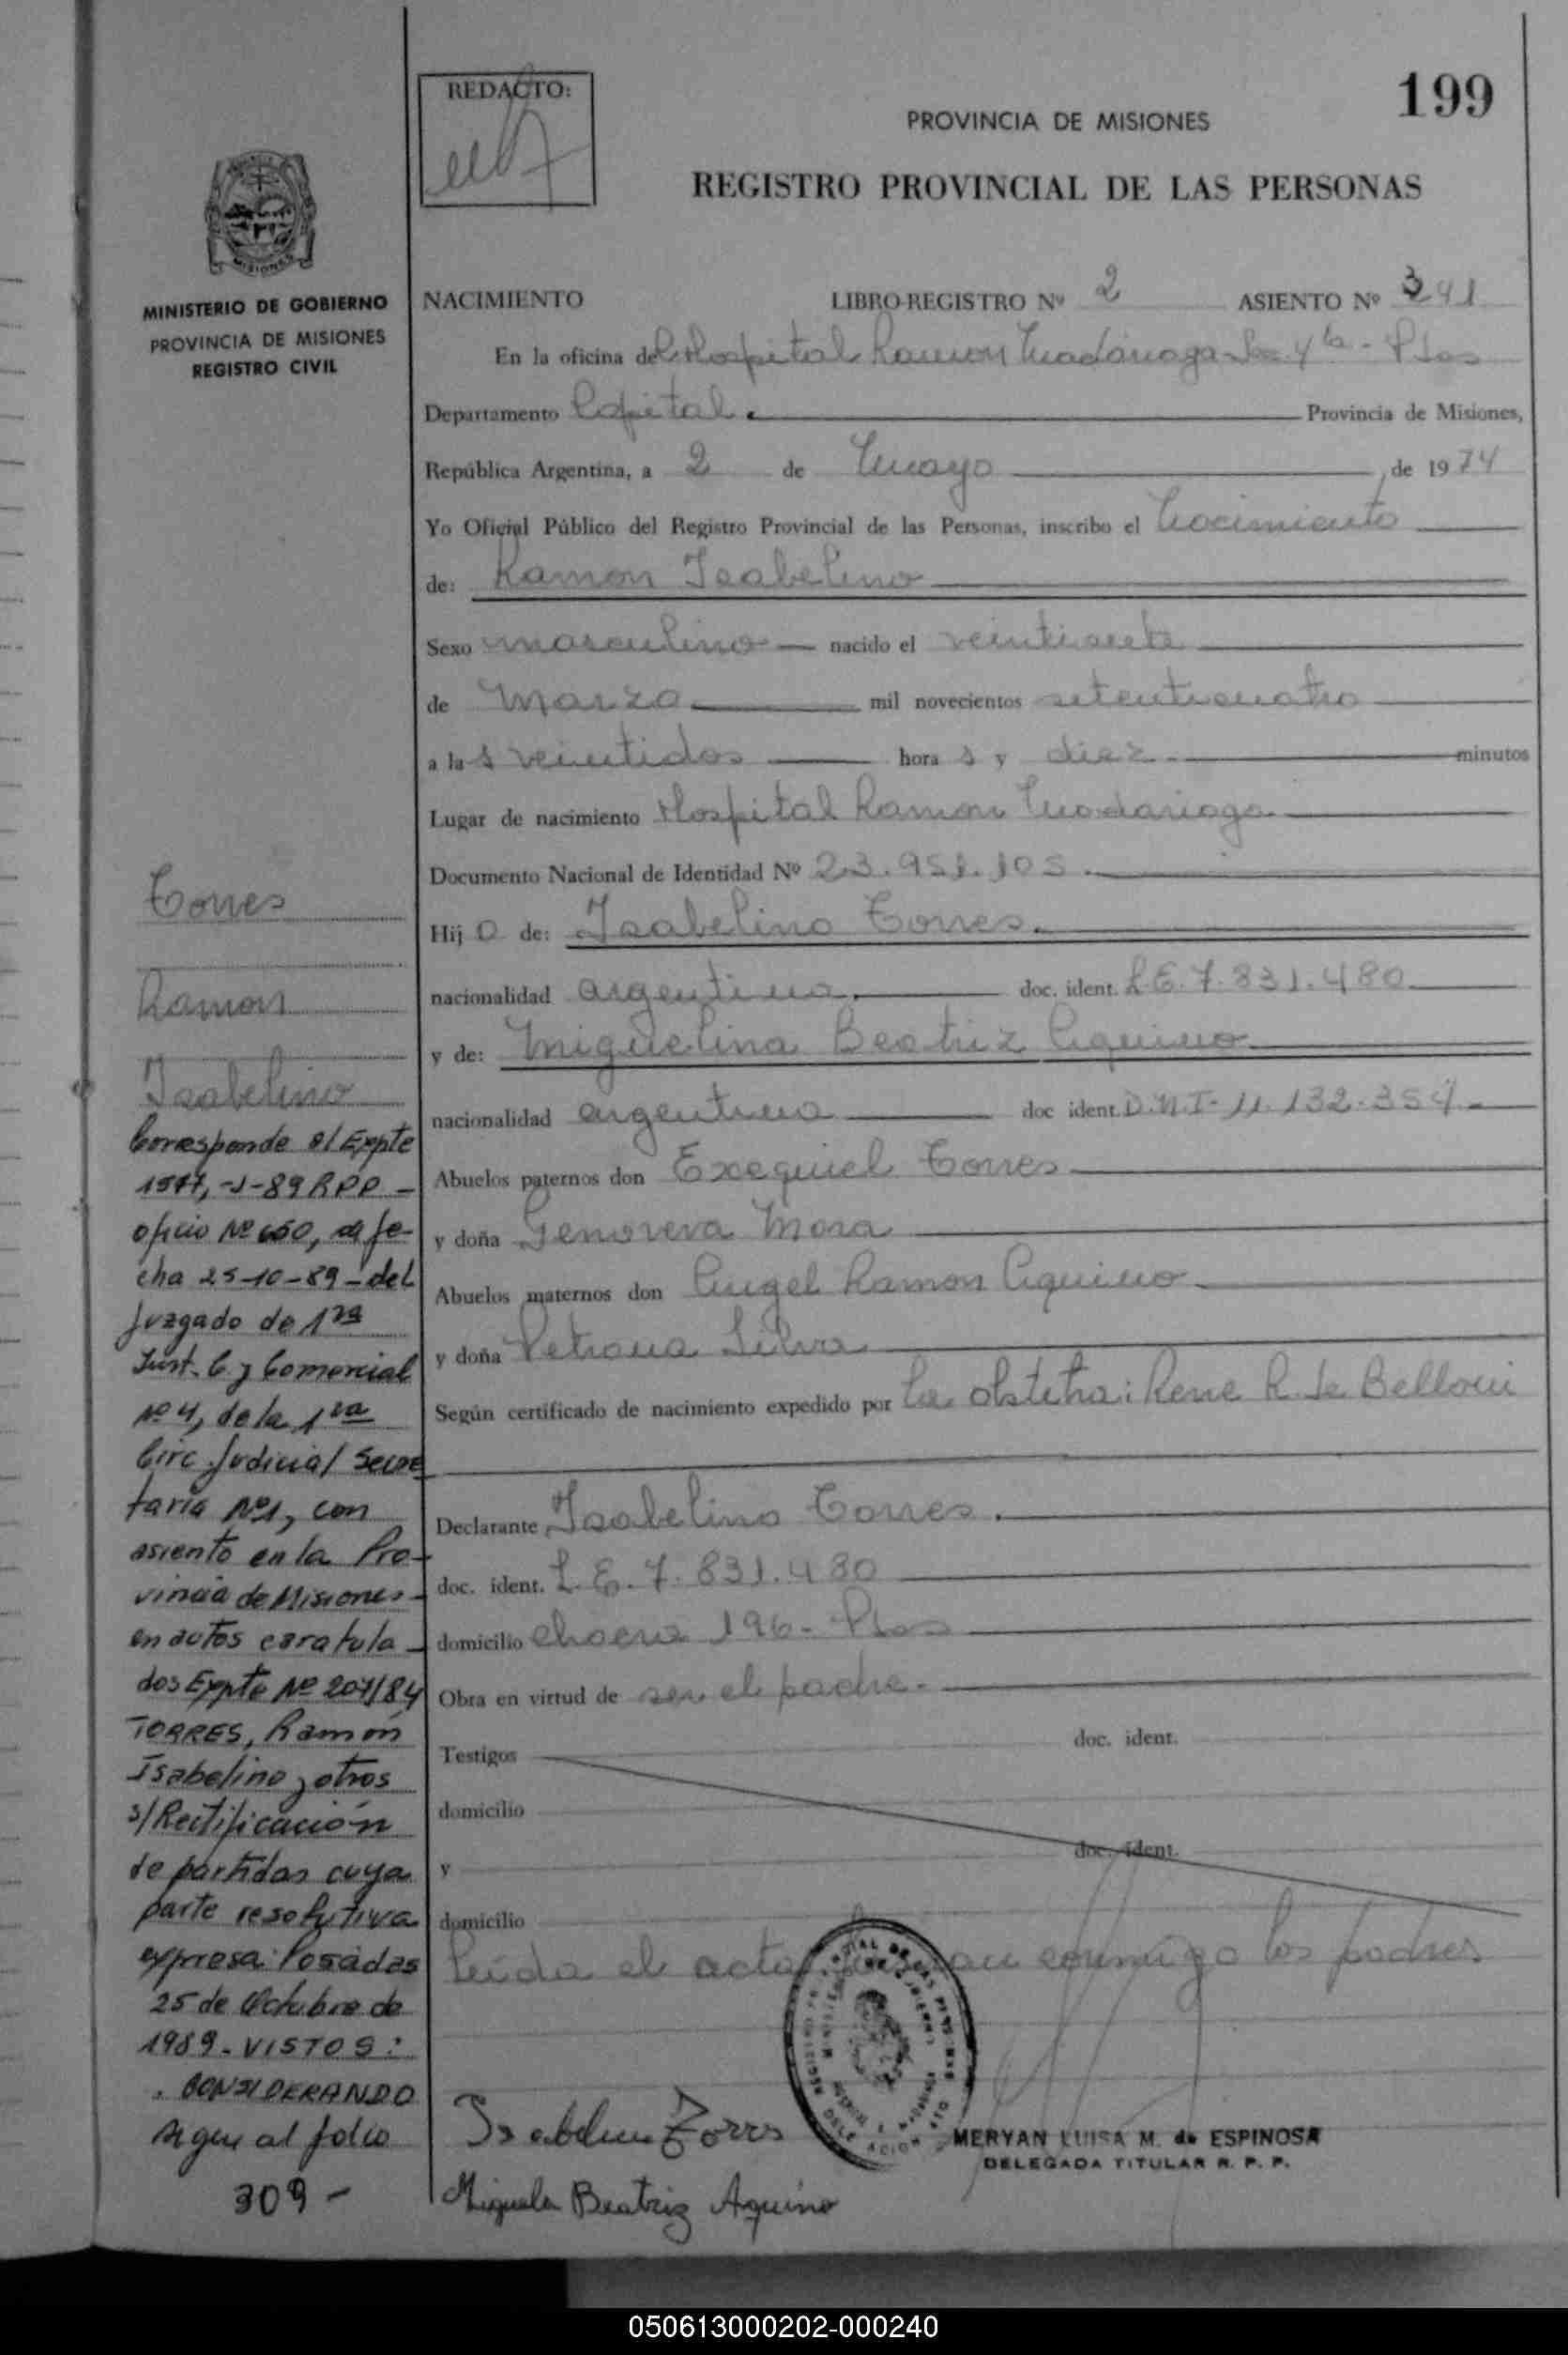 199
REDACTO:
PROVINCIA DE MISIONES
REGISTRO PROVINCIAL DE LAS PERSONAS
MISIONES
MINISTERIO DE GOBIERNO
PROVINCIA DE MISIONES
REGISTRO CIVIL
NACIMIENTO LIBRO-REGISTRO Nº 2 ASIENTO Nº 341
En la oficina del Hospital Ramon Madariaga Sec 4ta - Pdas
Departamento Capital. Provincia de Misiones,
República Argentina, a 2 de Mayo de 1974
Yo Oficial Público del Registro Provincial de las Personas, inscribo el Nacimiento
de: Ramon Isabelino
Sexo masculino nacido el veintisiete
de Marzo mil novecientos setenticuatro
a las veintidos horas y diez minutos
Lugar de nacimiento Hospital Ramon Madariaga
Documento Nacional de Identidad Nº 23.951.105.
Hijo de: Isabelino Torres.
nacionalidad argentina. doc. ident. L.E. 7.831.480
y de: Miguelina Beatriz Aquino
nacionalidad argentina doc ident. D.N.I. 11.132.354
Abuelos paternos don Exequiel Torres
y doña Genoveva Mora
Abuelos maternos don Angel Ramon Aquino
y doña Petrona Silva
Según certificado de nacimiento expedido por La obstetra: Rene R. de Belloni
Declarante Isabelino Torres.
doc. ident. L.E. 7.831.480
domicilio chacra 196 - Pdas
Obra en virtud de ser el padre.
Testigos doc. ident.
domicilio
y doc. ident.
domicilio
Leida el acta firman conmigo los padres
Isabelino Torres
Miguela Beatriz Aquino
MERYAN LUISA M. de ESPINOSA
DELEGADA TITULAR R. P. P.
Torres
Ramon
Isabelino
Corresponde al Expte
1577,-J-89 RPP -
oficio Nº 650, de fe-
cha 25-10-89 - del
Juzgado de 1ra
Inst. C. y Comercial
Nº 4, de la 1ra
Circ. Judicial Secre
taria Nº1, con
asiento en la Pro-
vincia de Misiones -
en autos caratula -
dos Expte Nº 207/84
TORRES, Ramón
Isabelino y otros
s/Rectificación
de partidas cuya
parte resolutiva
expresa: Posadas
25 de Octubre de
1989 - VISTOS:
. CONSIDERANDO
sigue al folio
309 -
050613000202-000240